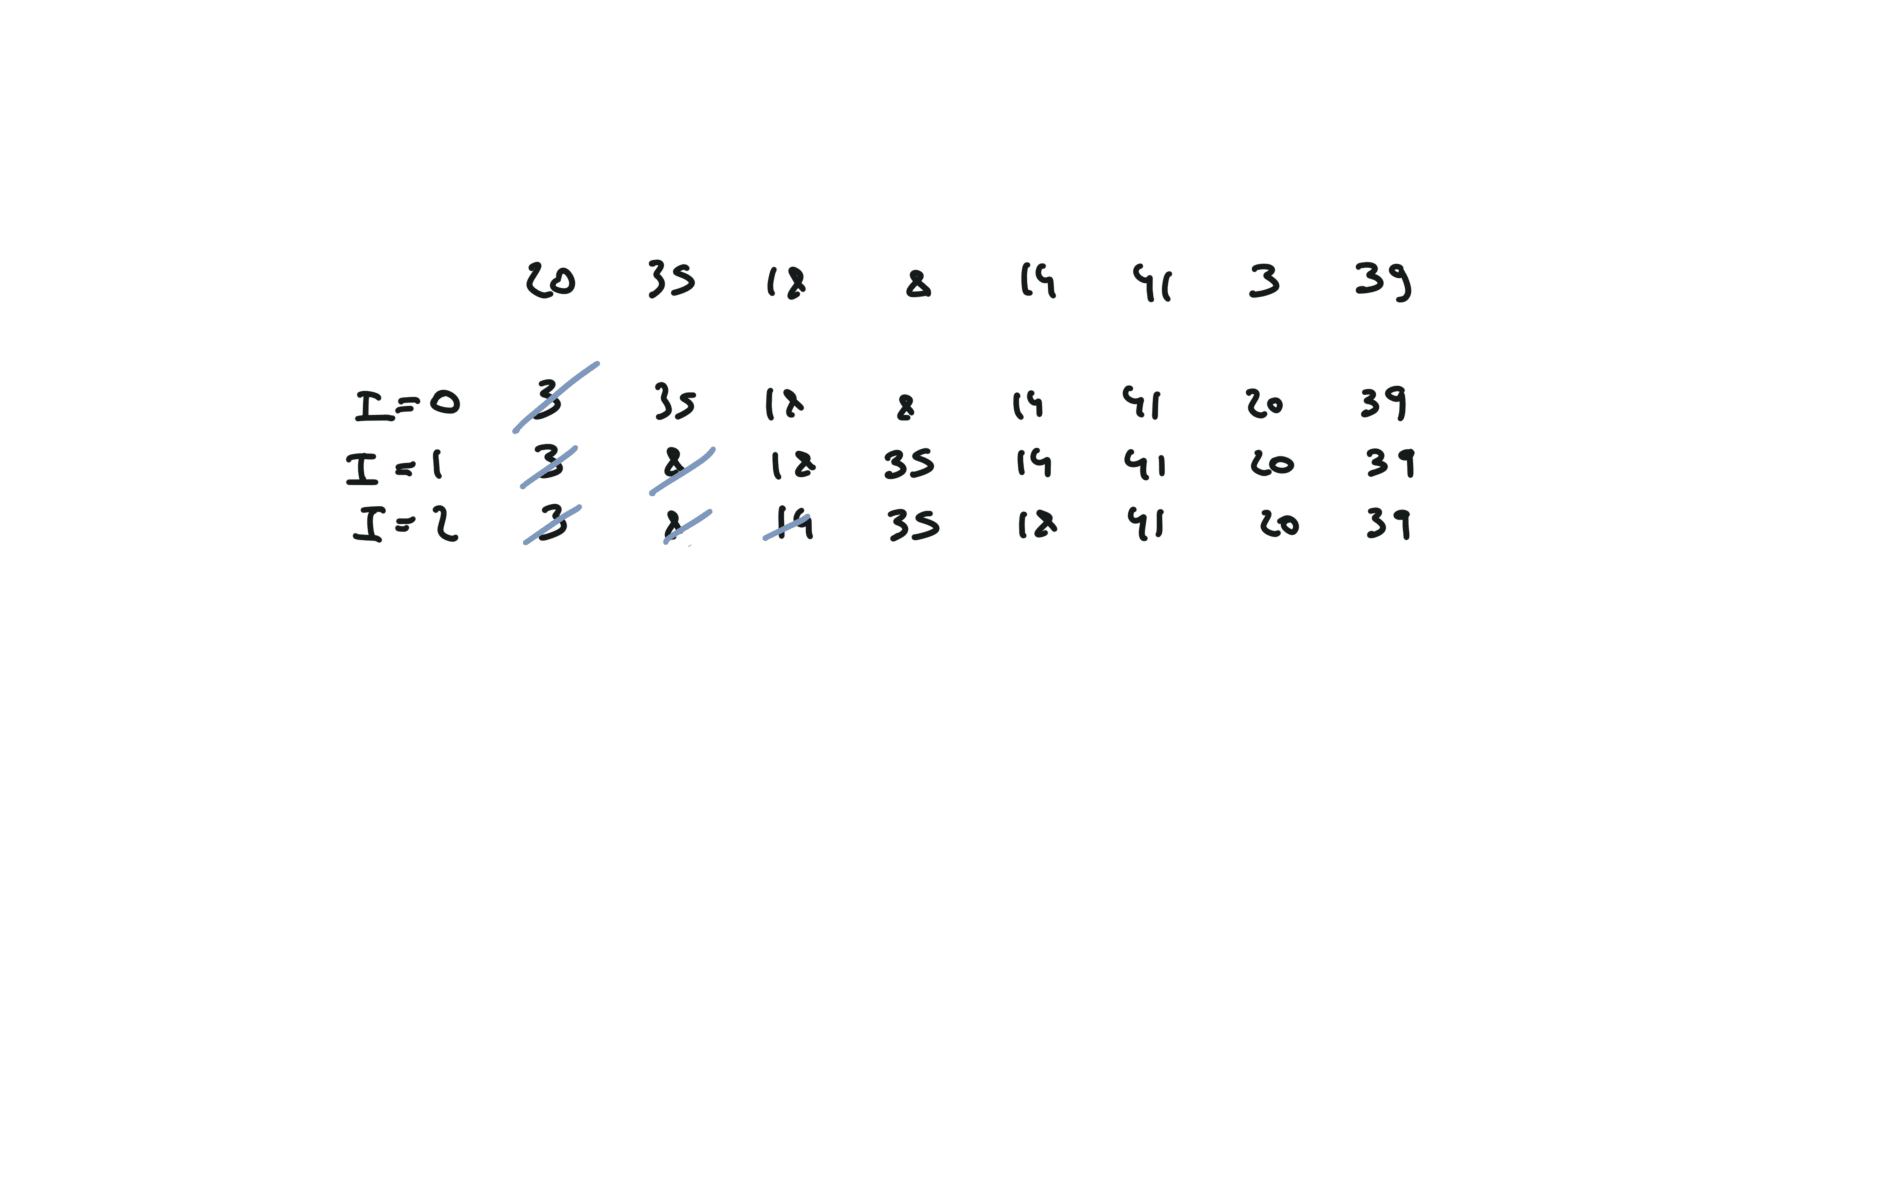 20 35 18 8 14 41 3 39
I=0 3 35 18 8 14 41 20 39
I=1 3 8 18 35 14 41 20 39
I=2 3 8 14 35 18 41 20 39